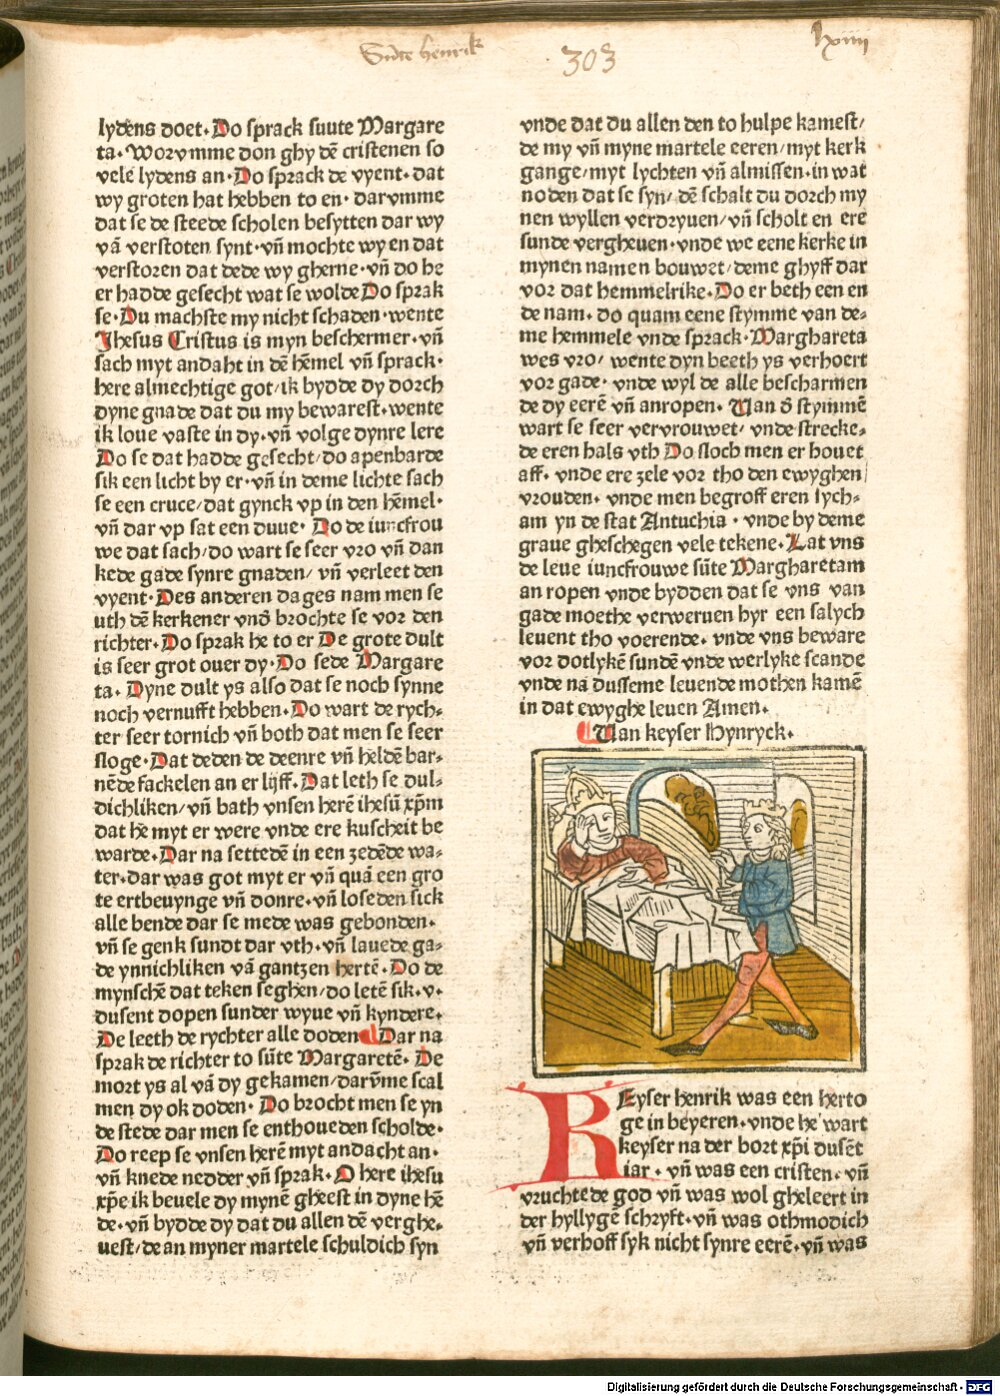 Sūte henrik
303
lxiiii
lydens doet. Do sprack suute Margare
ta. Worvmme don ghy dē cristenen so
vele lydens an. Do sprack de vyent. dat
wy groten hat hebben to en. darvmme
dat se de steede scholen besytten dar wy
vā verstoten synt. vn̄ mochte wy en dat
verstoren dat dede wy gherne. vn̄ do he
er hadde gesecht wat se wolde Do sprak
se. Du machste my nicht schaden. wente
Jhesus Cristus is myn beschermer. vn̄
sach myt andaht in dē hēmel vn̄ sprack.
here almechtige got/ik bydde dy dorch
dyne gnade dat du my bewarest. wente
ik loue vaste in dy. vn̄ volge dynre lere
Do se dat hadde gesecht/do apenbarde
sik een licht by er. vn̄ in deme lichte sach
se een cruce/dat gynck vp in den hēmel.
vn̄ dar vp sat een duue. Do de iuncfrou
we dat sach/do wart se seer vro vn̄ dan
kede gade synre gnaden/ vn̄ verleet den
vyent. Des anderen dages nam men se
uth dē kerkener vnd̄ brochte se vor den
richter. Do sprak he to er De grote dult
is seer grot ouer dy. Do sede Margare
ta. Dyne dult ys also dat se noch synne
noch vernufft hebben. Do wart de rych⸗
ter seer tornich vn̄ both dat men se seer
sloge. Dat deden de deenre vn̄ heldē bar⸗
nēde fackelen an er lijff. Dat leth se dul⸗
dichliken/ vn̄ bath vnsen herē ihesū xp̄m
dat he myt er were vnde ere kuscheit be
warde. Dar na settedē in een zedēde wa⸗
ter. dar was got myt er vn̄ quā een gro
te ertbeuynge vn̄ donre. vn̄ loseden sick
alle bende dar se mede was gebonden.
vn̄ se genk sundt dar vth. vn̄ lauede ga⸗
de ynnichliken vā gantzen hertē. Do de
mynschē dat teken seghen/do letē sik. v.
dusent dopen sunder wyue vn̄ kyndere.
De leeth de rychter alle doden ¶ Dar na
sprak de richter to sūte Margaretē. De
mort ys al vā dy gekamen/darv̄me scal
men dy ok doden. Do brocht men se yn
de stede dar men se enthoueden scholde.
Do reep se vnsen herē myt andacht an.
vn̄ knede nedder vn̄ sprak. O here ihesu
xp̄e ik beuele dy mynē gheest in dyne hē
de. vn̄ bydde dy dat du allen dē verghe⸗
uest/de an myner martele schuldich syn
vnde dat du allen den to hulpe kamest/
de my vn̄ myne martele eeren/myt kerk
gange/myt lychten vn̄ almissen. in wat
noden dat se syn/ dē schalt du dorch my
nen wyllen verdryuen/vn̄ scholt en ere
sunde vergheuen. vnde we eene kerke in
mynen namen bouwet/deme ghyff dar
vor dat hemmelrike. Do er beth een en
de nam. do quam eene stymme van de⸗
me hemmele vnde sprack. Marghareta
wes vro/ wente dyn beeth ys verhoert
vor gade. vnde wyl de alle bescharmen
de dy eerē vn̄ anropen. Uan d̄ stymmē
wart se seer vervrouwet/ vnde strecke⸗
de eren hals vth Do sloch men er houet
aff. vnde ere zele vor tho den ewyghen
vrouden. vnde men begroff eren lych⸗
am yn de stat Antuchia. vnde by deme
graue gheschegen vele tekene. Lat vns
de leue iuncfrouwe sūte Margharetam
an ropen vnde bydden dat se vns van
gade moethe verweruen hyr een salych
leuent tho voerende. vnde vns beware
vor dotlykē sundē vnde werlyke scande
vnde na dusseme leuende mothen kamē
in dat ewyghe leuen Amen.
¶ Uan keyser Hynryck.
KEyser henrik was een herto
ge in beyeren. vnde he wart
keyser na der bort xp̄i dusēt
iar. vn̄ was een cristen. vn̄
vruchtede god vn̄ was wol gheleert in
der hyllygē schryft. vn̄ was othmodich
vn̄ verhoff syk nicht synre eerē. vn̄ was
Digitalisierung gefördert durch die Deutsche Forschungsgemeinschaft - DFG